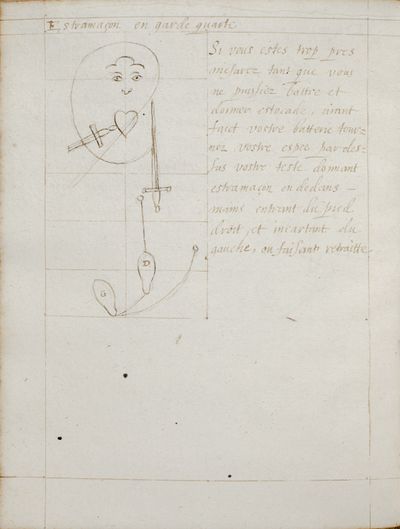 Estramaçon en garde quarte
Si vous estes trop pres
mesurez tant que vous
ne puissiez battre et
donner estocade, aiant
faict vostre batterie tour=
nez vostre espee par des=
sus vostre teste donnant
estramaçon en dedans –
mains entrant du pied
droit, et incartant du
gauche, ou faisant retraitte
D
G